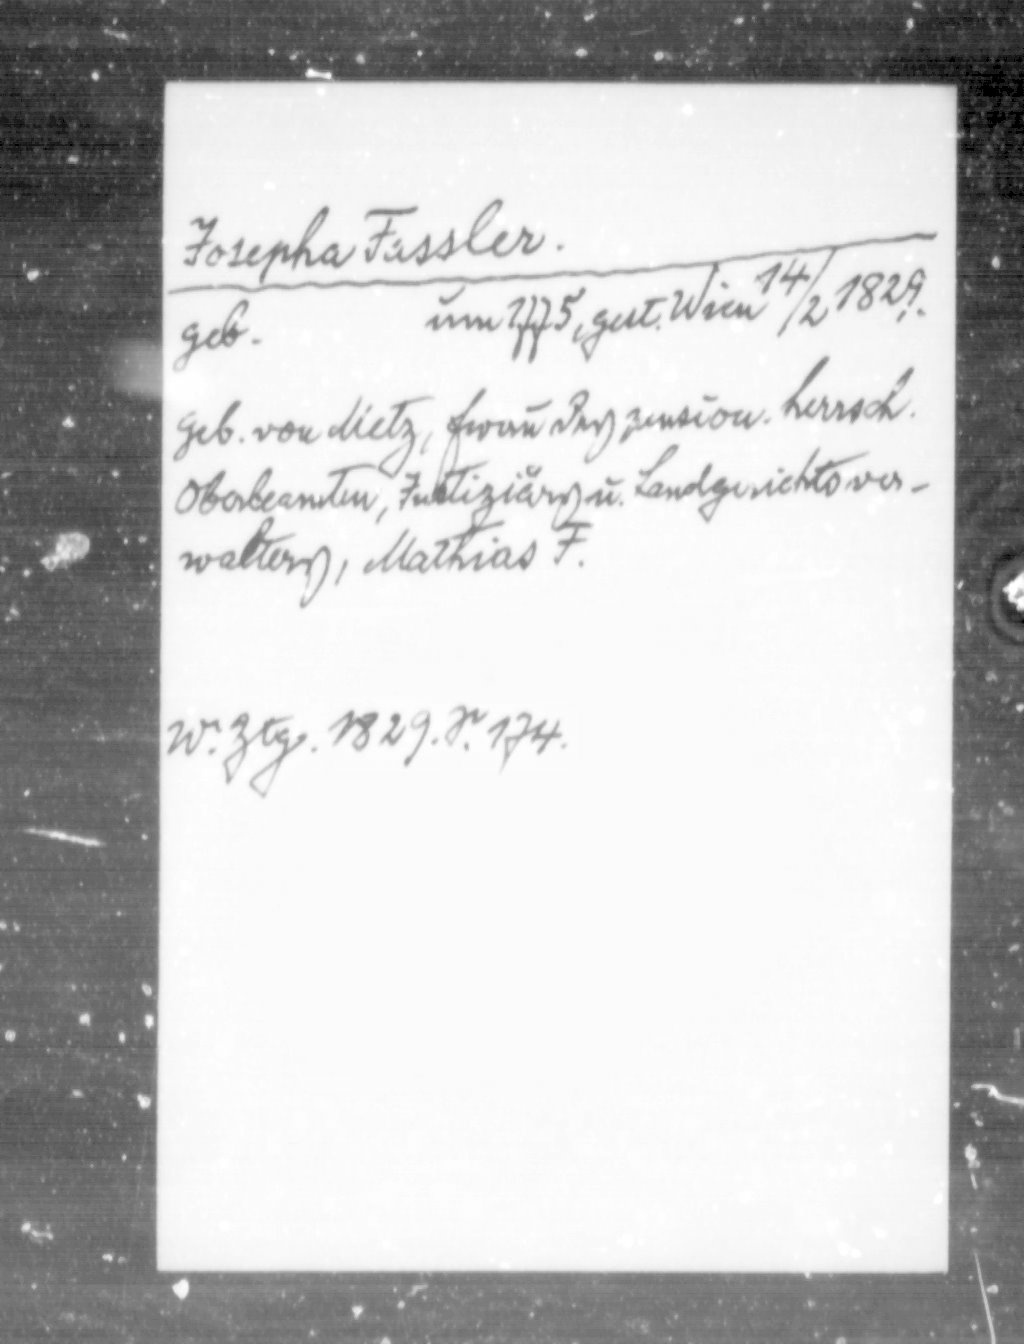 Josepha Fessler.
geb. um 1775, gest. Wien 14/2 1829.
geb. von Metz, Frau des pension. herrsch.
Oberbeamten, Justiziärs u. Landgerichtsver-
walters, Mathias F.
Wr. Ztg. 1829. S. 174.